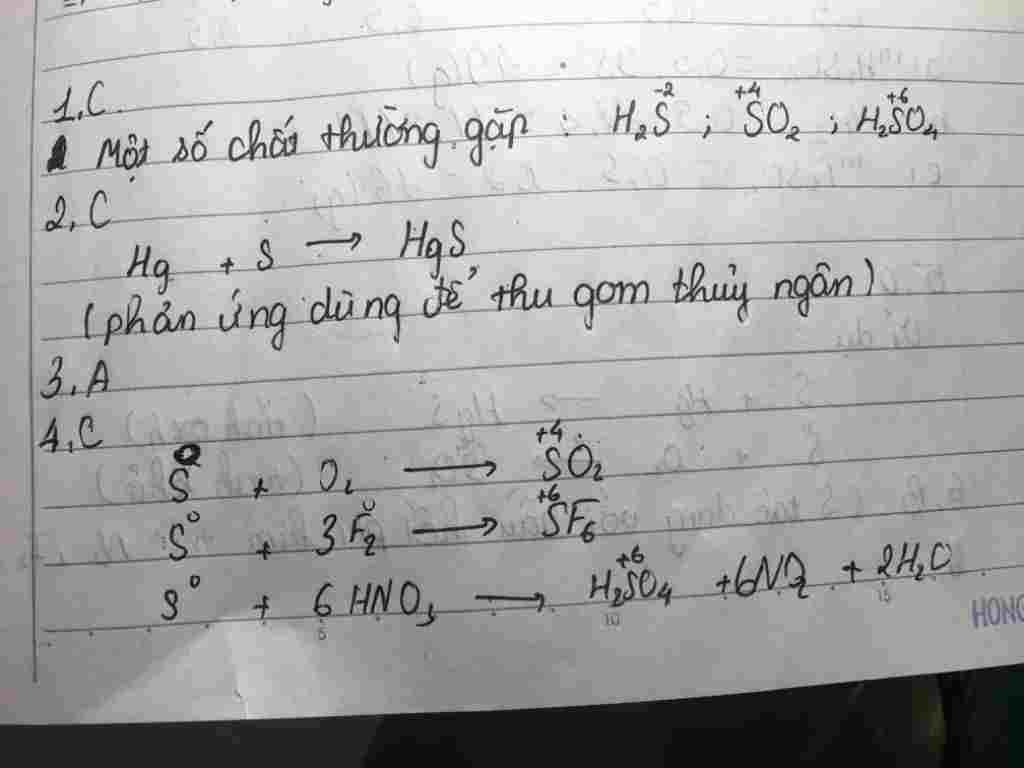 1, C
Một số chất thường gặp : H₂S⁻² ; S⁺⁴O₂ ; H₂S⁺⁶O₄
2, C
Hg + S → HgS
(phản ứng dùng để thu gom thủy ngân)
3, A
4, C
S⁰ + O₂ → S⁺⁴O₂
S⁰ + 3F₂⁰ → S⁺⁶F₆
S⁰ + 6HNO₃ → H₂S⁺⁶O₄ + 6NO₂ + 2H₂O
5 10 15
HONG